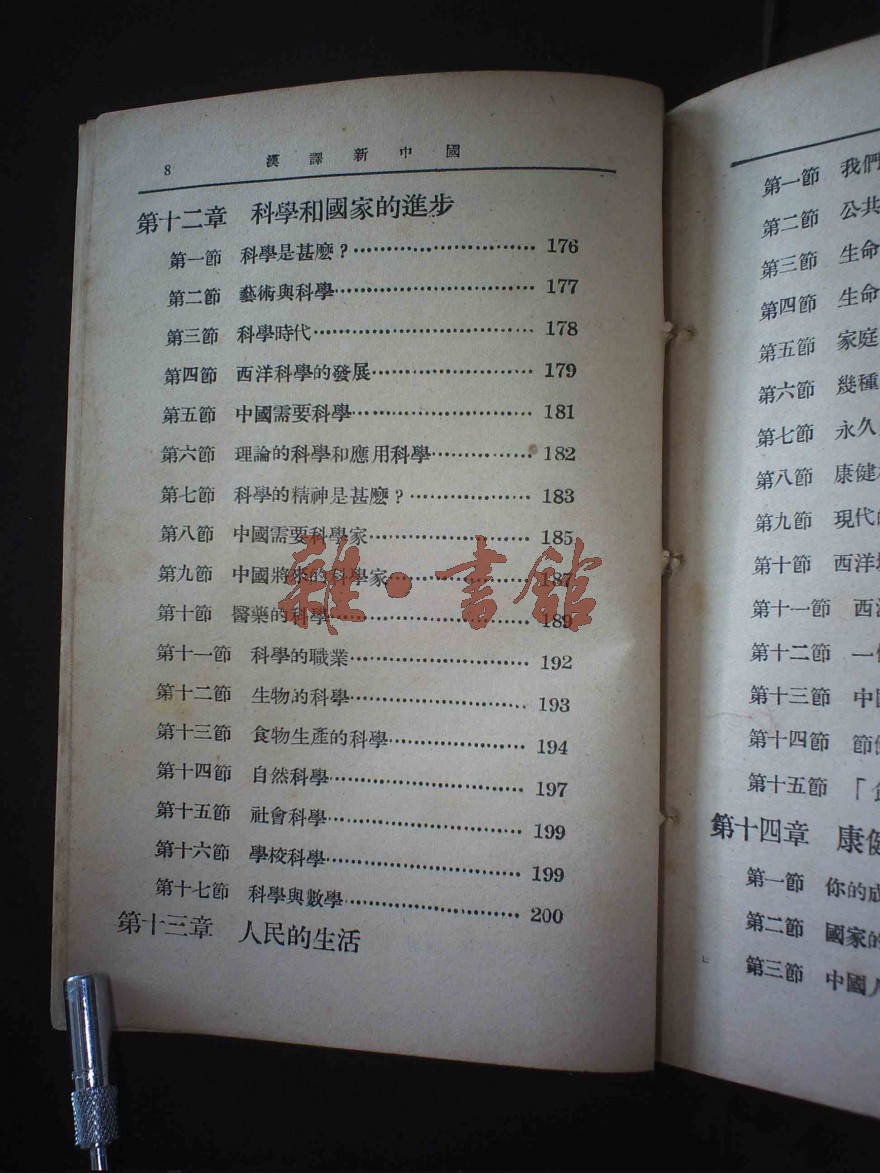 8 漢譯新中國
第十二章 科學和國家的進步
第一節 科學是甚麽？ 176
第二節 藝術與科學 177
第三節 科學時代 178
第四節 西洋科學的發展 179
第五節 中國需要科學 181
第六節 理論的科學和應用科學 182
第七節 科學的精神是甚麽？ 183
第八節 中國需要科學家 185
第九節 中國將來的科學家 187
第十節 醫藥的科學 189
第十一節 科學的職業 192
第十二節 生物的科學 193
第十三節 食物生產的科學 194
第十四節 自然科學 197
第十五節 社會科學 199
第十六節 學校科學 199
第十七節 科學與數學 200
第十三章 人民的生活
雜·書館
第一節 我們
第二節 公共
第三節 生命
第四節 生命
第五節 家庭
第六節 幾種
第七節 永久
第八節 康健
第九節 現代
第十節 西洋
第十一節 西
第十二節 一
第十三節 中
第十四節 節
第十五節 「
第十四章 康健
第一節 你的成
第二節 國家的
第三節 中國人